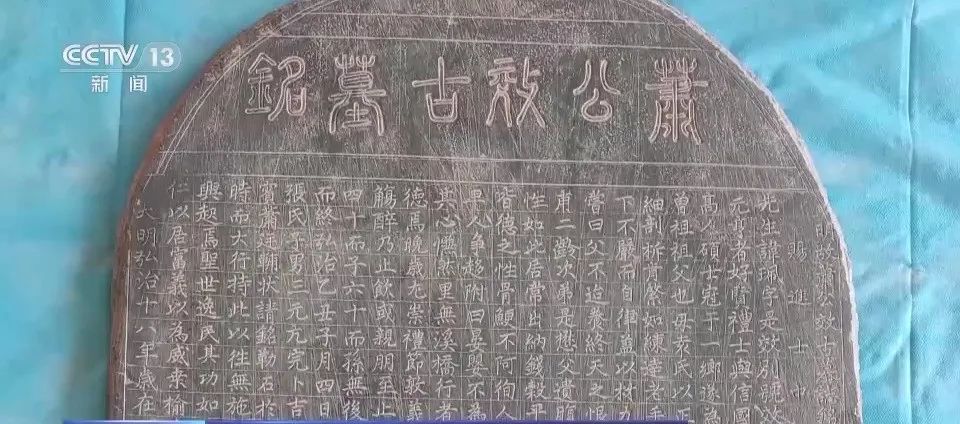 CCTV 13
新闻
蕭公效古墓銘
明故蕭公效古墓誌銘
賜進士中
先生諱珮字是效別號效
元者好賢禮士與信國
以碩士冠于一鄉遂為
曾祖祖父也母袁氏以正
細剖析肯綮如練達老手
下不嚴而自律蓋以技力
嘗曰父不迨養終天之恨
甫二齡次弟是懋父遺腹
性如此居常出納錢穀平
皆德之性骨鯁不阿徇人
人爭趍附曰晏嬰不為
其心慊然里無溪橋行者
德焉晚歲尤崇禮節敦義
觴醉乃止飲或親朋至止
四十而子六十而孫無後
而終弘治乙丑子月四日
張氏子男三元亢完卜吉
賓蕭廷輔狀請銘勒石於
時而大行持此以往無施
興起焉聖世逸民其功如
仁以居富義以為威桑榆
大明弘治十八年歲在